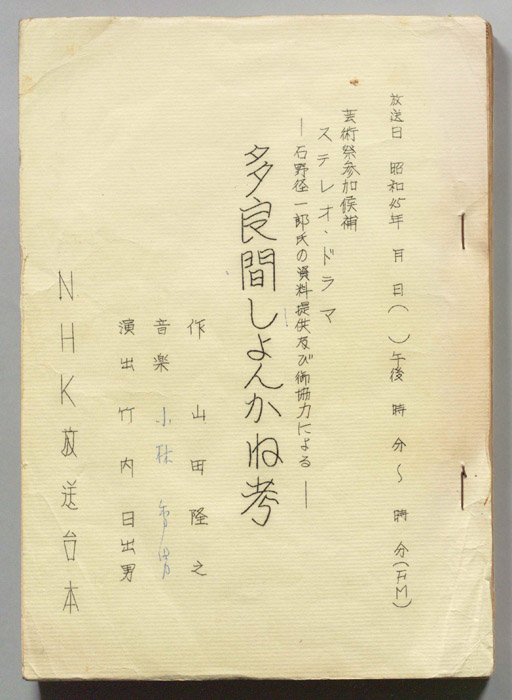 放送日 昭和45年 月 日( )午後 時 分〜 時 分(FM)
芸術祭参加候補
ステレオ・ドラマ
―石野径一郎氏の資料提供及び御協力による―
多良間しょんかね考
作 山田隆之
音楽 小林
演出 竹内日出男
NHK放送台本